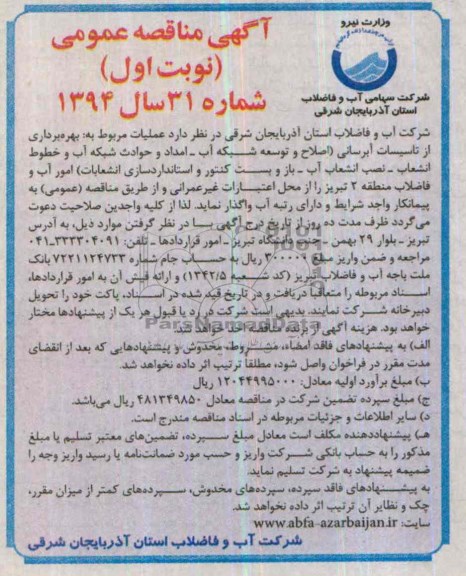 وزارت نیرو
شرکت سهامی آب و فاضلاب
استان آذربایجان شرقی
آگهی مناقصه عمومی
(نوبت اول)
شماره ۳۱ سال ۱۳۹۴
شرکت آب و فاضلاب استان آذربایجان شرقی در نظر دارد عملیات مربوط به: بهره‌برداری
از تاسیسات آبرسانی (اصلاح و توسعه شبکه آب ـ امداد و حوادث شبکه آب و خطوط
انشعاب ـ نصب انشعاب آب ـ باز و بست کنتور و استانداردسازی انشعابات) امور آب و
فاضلاب منطقه ۲ تبریز را از محل اعتبارات غیرعمرانی و از طریق مناقصه (عمومی) به
پیمانکار واجد شرایط و دارای رتبه آب واگذار نماید. لذا از کلیه واجدین صلاحیت دعوت
می‌گردد ظرف مدت ده روز از تاریخ درج آگهی با در نظر گرفتن موارد ذیل، به آدرس
تبریز ـ بلوار ۲۹ بهمن ـ جنب دانشگاه تبریز ـ امور قراردادها ـ تلفن: ۳۳۳۰۴۰۹۱ـ۰۴۱
مراجعه و ضمن واریز مبلغ ۳۰۰۰۰۰ ریال به حساب جام شماره ۷۲۲۱۱۲۴۷۳۳ بانک
ملت باجه آب و فاضلاب تبریز (کد شعبه ۱۳۴۲/۵) و ارائه فیش آن به امور قراردادها،
اسناد مربوطه را متعاقباً دریافت و در تاریخ قید شده در اسناد، پاکت خود را تحویل
دبیرخانه شرکت نمایند. بدیهی است شرکت در رد یا قبول هر یک از پیشنهادها مختار
خواهد بود. هزینه آگهی از برنده مناقصه
الف) به پیشنهادهای فاقد امضاء، مشروط، مخدوش و پیشنهادهایی که بعد از انقضای
مدت مقرر در فراخوان واصل شود، مطلقاً ترتیب اثر داده نخواهد شد.
ب) مبلغ برآورد اولیه معادل: ۱۲۰۴۴۹۹۵۰۰۰ ریال
ج) مبلغ سپرده تضمین شرکت در مناقصه معادل ۴۸۱۳۴۹۸۵۰ ریال می‌باشد.
د) سایر اطلاعات و جزئیات مربوطه در اسناد مناقصه مندرج است.
هـ) پیشنهاددهنده مکلف است معادل مبلغ سپرده، تضمین‌های معتبر تسلیم یا مبلغ
مذکور را به حساب بانکی شرکت واریز و حسب مورد ضمانت‌نامه یا رسید واریز وجه را
ضمیمه پیشنهاد به شرکت تسلیم نماید.
به پیشنهادهای فاقد سپرده، سپرده‌های مخدوش، سپرده‌های کمتر از میزان مقرر،
چک و نظایر آن ترتیب اثر داده نخواهد شد.
سایت: www.abfa-azarbaijan.ir
شرکت آب و فاضلاب استان آذربایجان شرقی